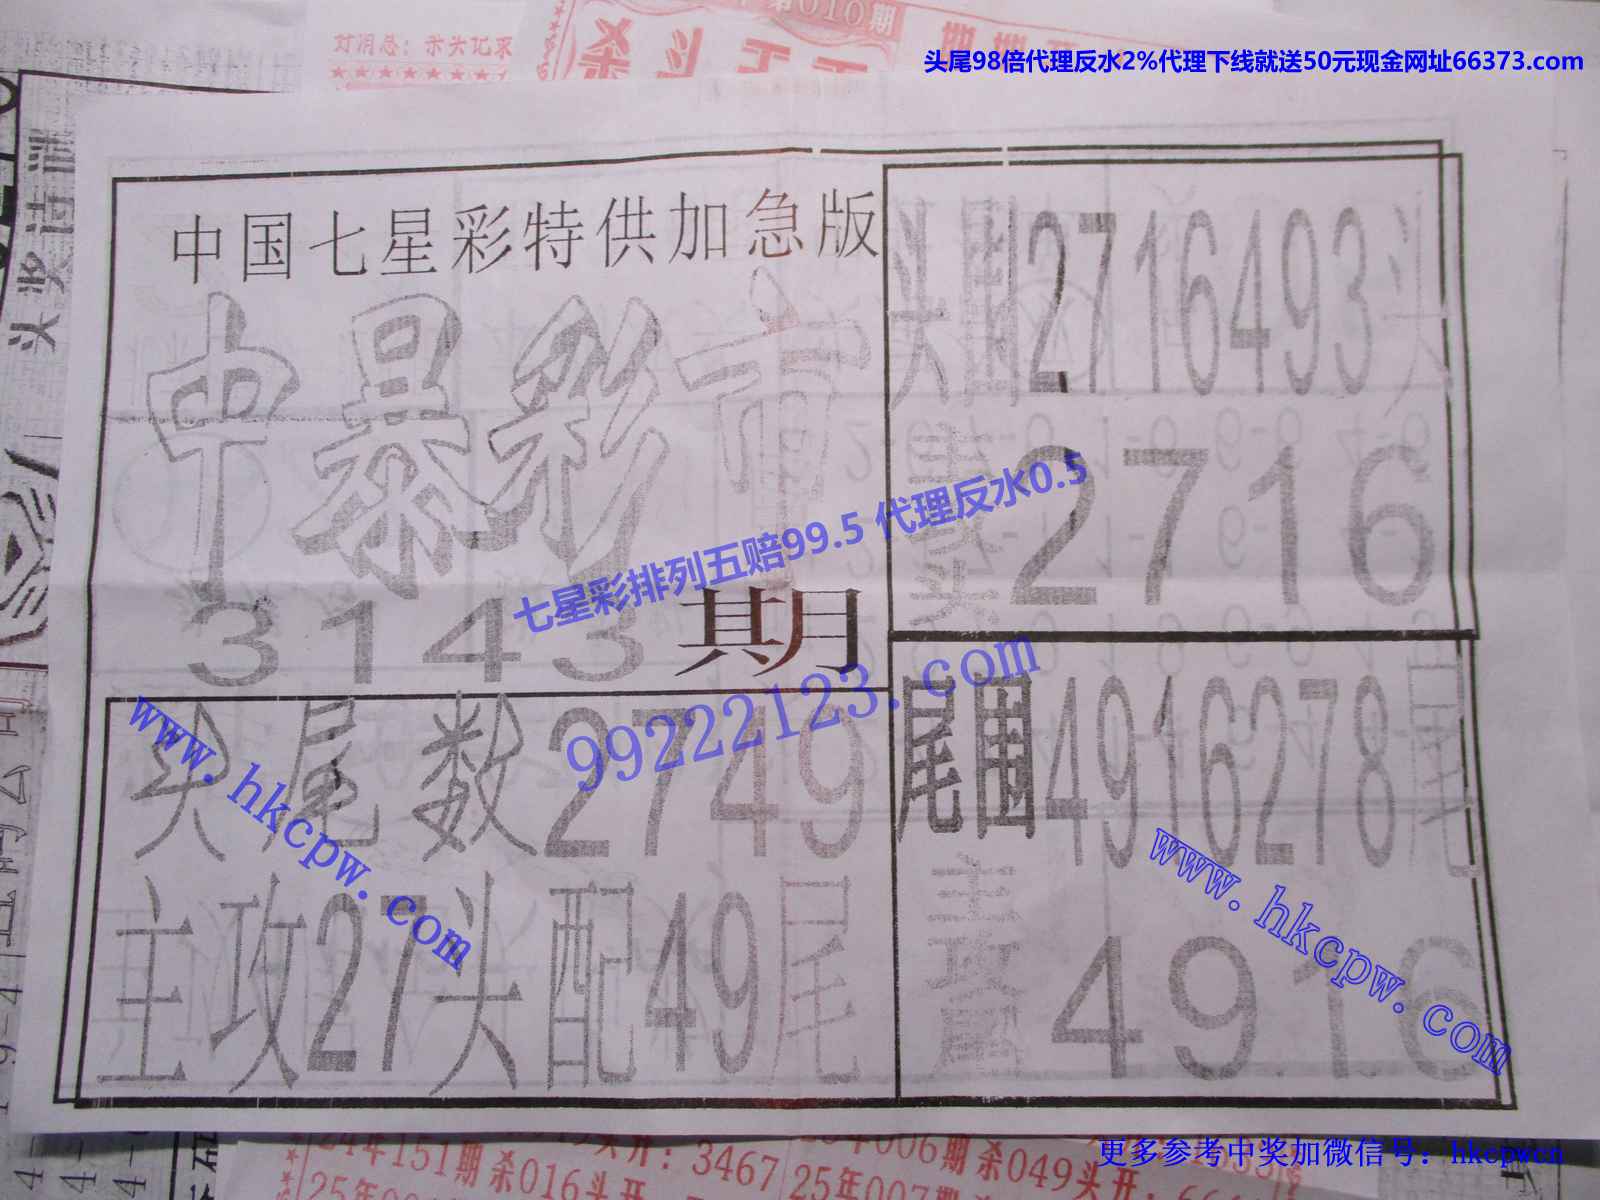 第010期
杀头
头尾98倍代理反水2%代理下线就送50元现金网址66373.com
中国七星彩特供加急版
中暴彩市
3143期
头尾数2749
主攻27头配49尾
头围2716493头
主头2716
尾围4916278尾
主尾4916
七星彩排列五赔99.5 代理反水0.5
99222123.com
www.hkcpw.com
www.hkcpw.com
24年151期杀016头开：3467
006期杀049头开：
更多参考中奖加微信号：hkcpwcn